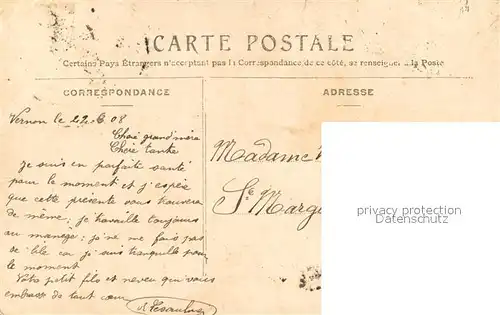 CARTE POSTALE
Certains Pays Étrangers n'acceptant pas la Correspondance de ce côté, se renseigner à la Poste
CORRESPONDANCE
ADRESSE
Vernon le 22-6 08
Chère grand'mère
Chère tante
Je suis en parfaite santé
pour le moment et j'espère
que cette présente vous trouvera
de même, je travaille toujours
au manège; je ne me fais pas
de bile car je suis tranquille pour
le moment
Votre petit fils et neveu qui vous
embrasse de tout cœur
Madame
Ste Margu
privacy protection
www.oldthing.de